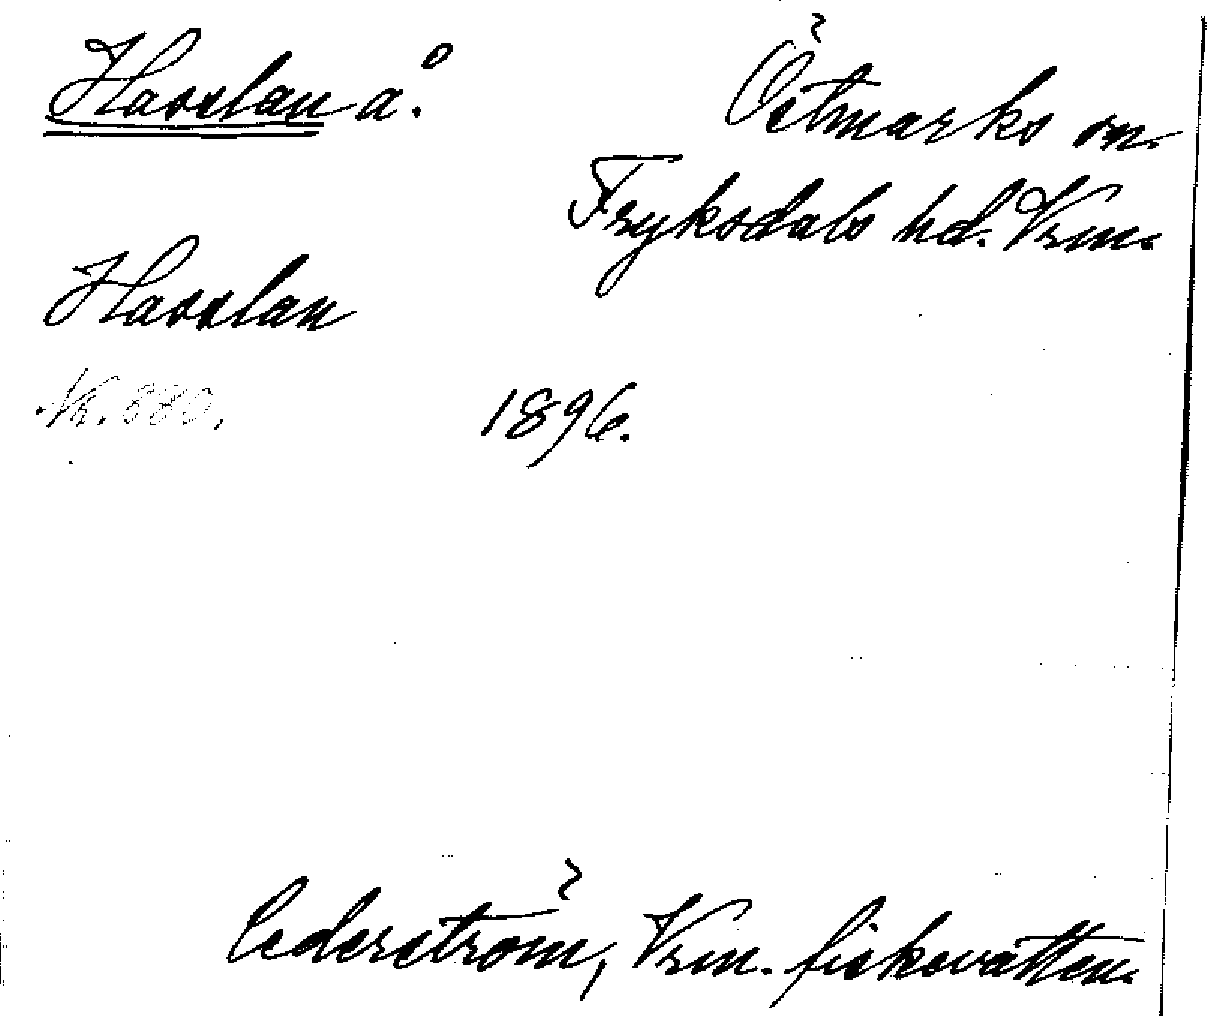 Hasslan å.
Östmarks sn.
Fryksdals hd. Vrm.
Hasslan
Nr. 880.
1896.
Cederström, Vrm. fiskevatten.